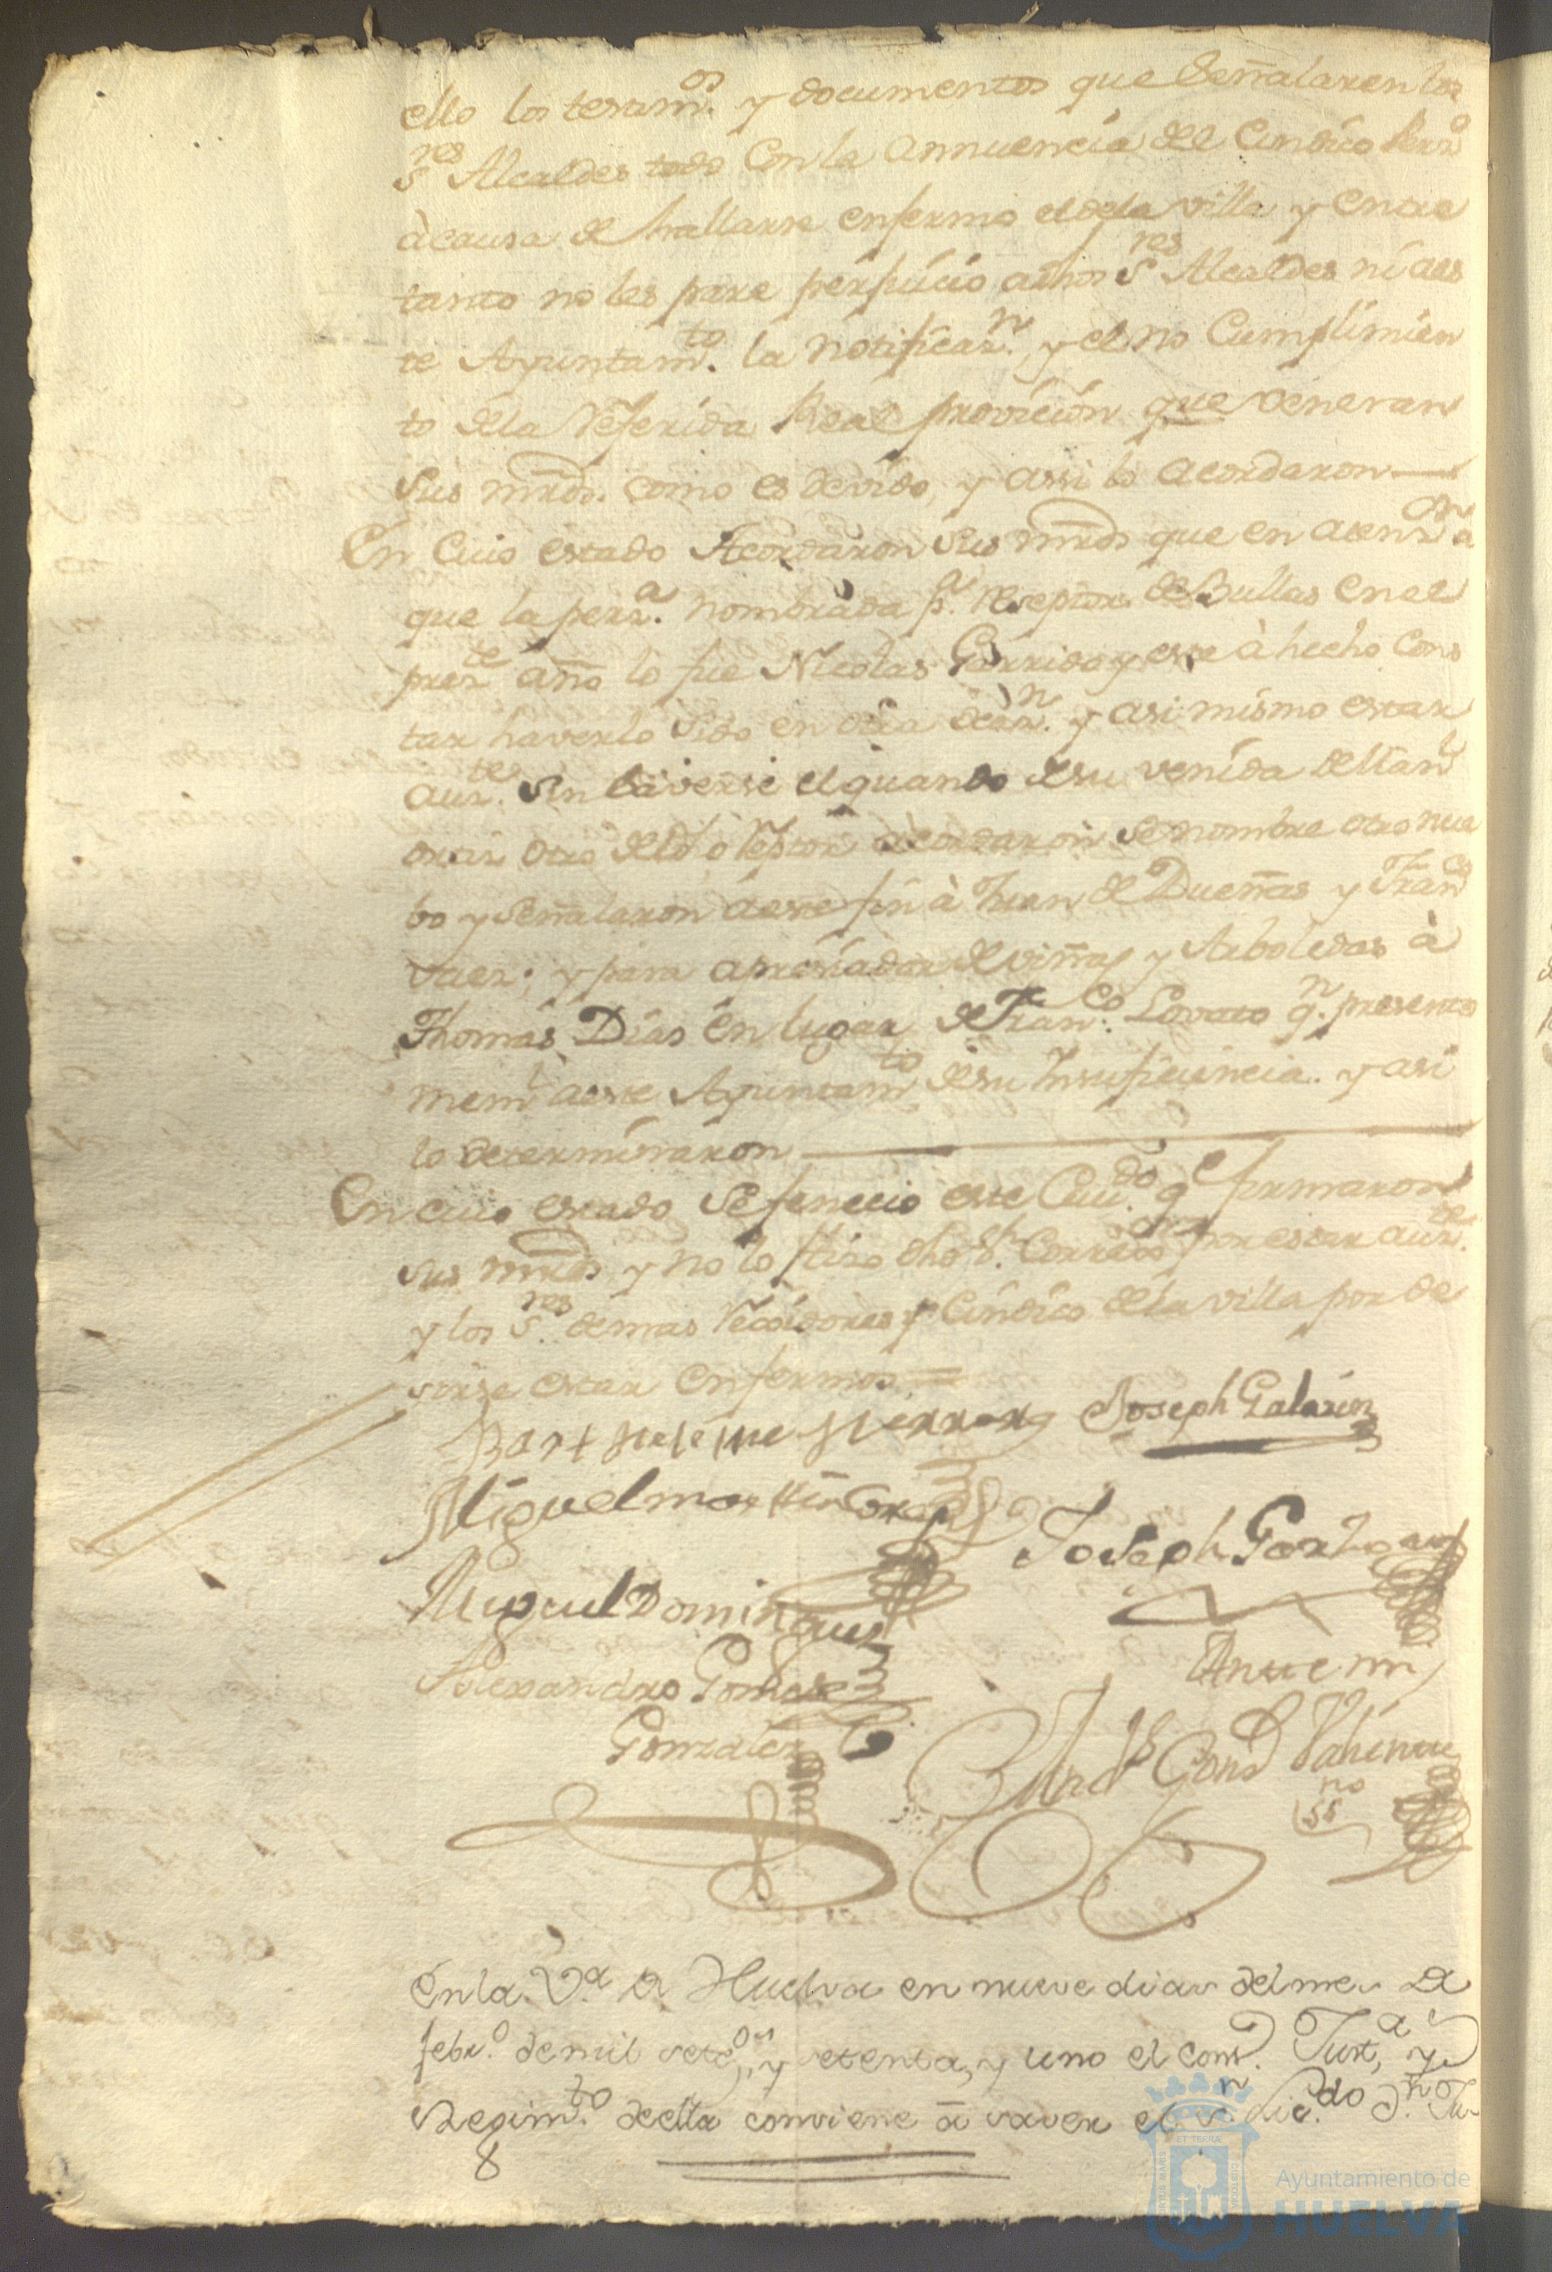 ello los testim.os y documentos que Señalaren los
S.res Alcaldes todo Con la annuencia del Cindico Perz.o
à causa de hallarse enfermo el de la villa y entre
tanto no les pare perjuicio a dhos S.res Alcaldes ni a es
te Ayuntam.to la notificaz.n y el no Cumplimien
to de la Referida Real provicion que veneran
Sus mrds. como es devido, y assi lo acordaron
En Cuio estado Acordaron Sus mrds que en atenz.on a
que la perz.a nombrada p.a Reseptor de Bullas en el
prez.te año lo fue Nicolas Garrido y este à hecho Cons
tar haverlo Sido en otra ocaz.n y asi mismo estar
auz.te Sin Saverse el quando de su venida
otro acordaron Se nombre otro nue
bo y Señalaron a este fin à Juan de Dueñas y Fran.co
Vaez; y para apreciador de viñas y Arboledas à
Thomas Dias en lugar de Fran.co Lovato q.n presento
mem.l a este Ayuntam.to de su Insuficiencia. y asi
lo determinaron
En cuio estado Se fenecio este Cau.do q.e firmaron
Sus mrds y no lo hizo dho S.r Correx.or por estar auz.te
y los S.res demas Recidores y Cindico de la villa por de
sirse estar enfermos =
Joseph Galarin
Miguel martin
Joseph Garzo
Miguel Domingues
Alexandro Gomes
Gonzalez
Ante mi
Gonz.
ss.no
En la V.a de Huelva en nueve dias del mes de
febr.o de mil setec.os y setenta, y uno el cons. Just.a y
Regim.to de ella conviene à saver el S.n Lic.do D.n Ju-
8
Ayuntamiento de
HUELVA